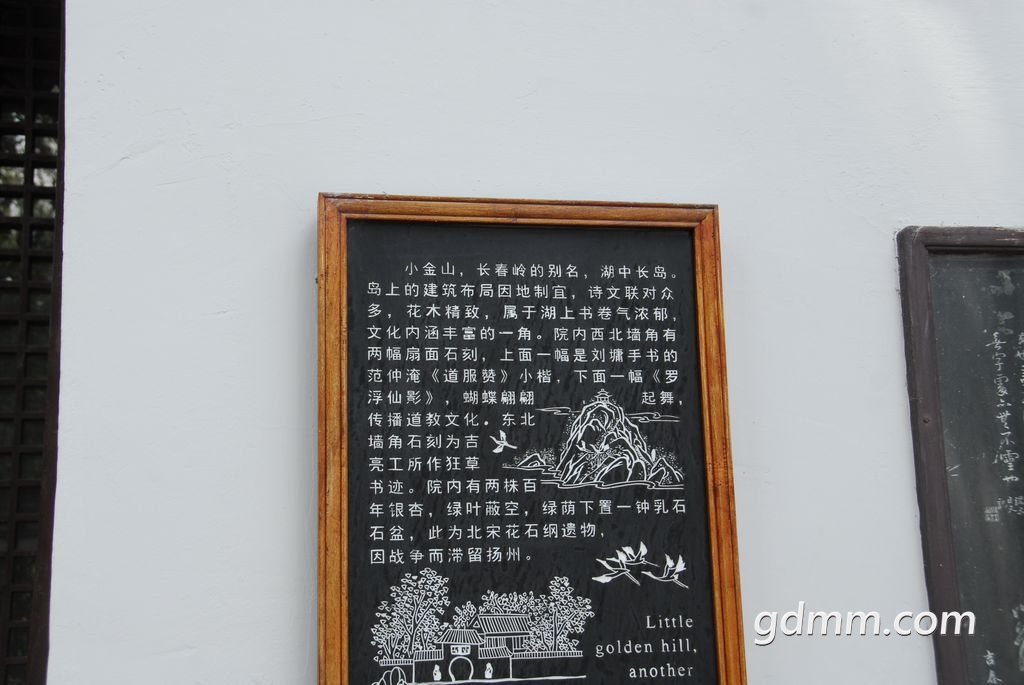 小金山，长春岭的别名，湖中长岛。
岛上的建筑布局因地制宜，诗文联对众
多，花木精致，属于湖上书卷气浓郁，
文化内涵丰富的一角。院内西北墙角有
两幅扇面石刻，上面一幅是刘墉手书的
范仲淹《道服赞》小楷，下面一幅《罗
浮仙影》，蝴蝶翩翩起舞，
传播道教文化。东北
墙角石刻为吉
亮工所作狂草
书迹。院内有两株百
年银杏，绿叶蔽空，绿荫下置一钟乳石
石盆，此为北宋花石纲遗物，
因战争而滞留扬州。
Little
golden hill,
another
gdmm.com